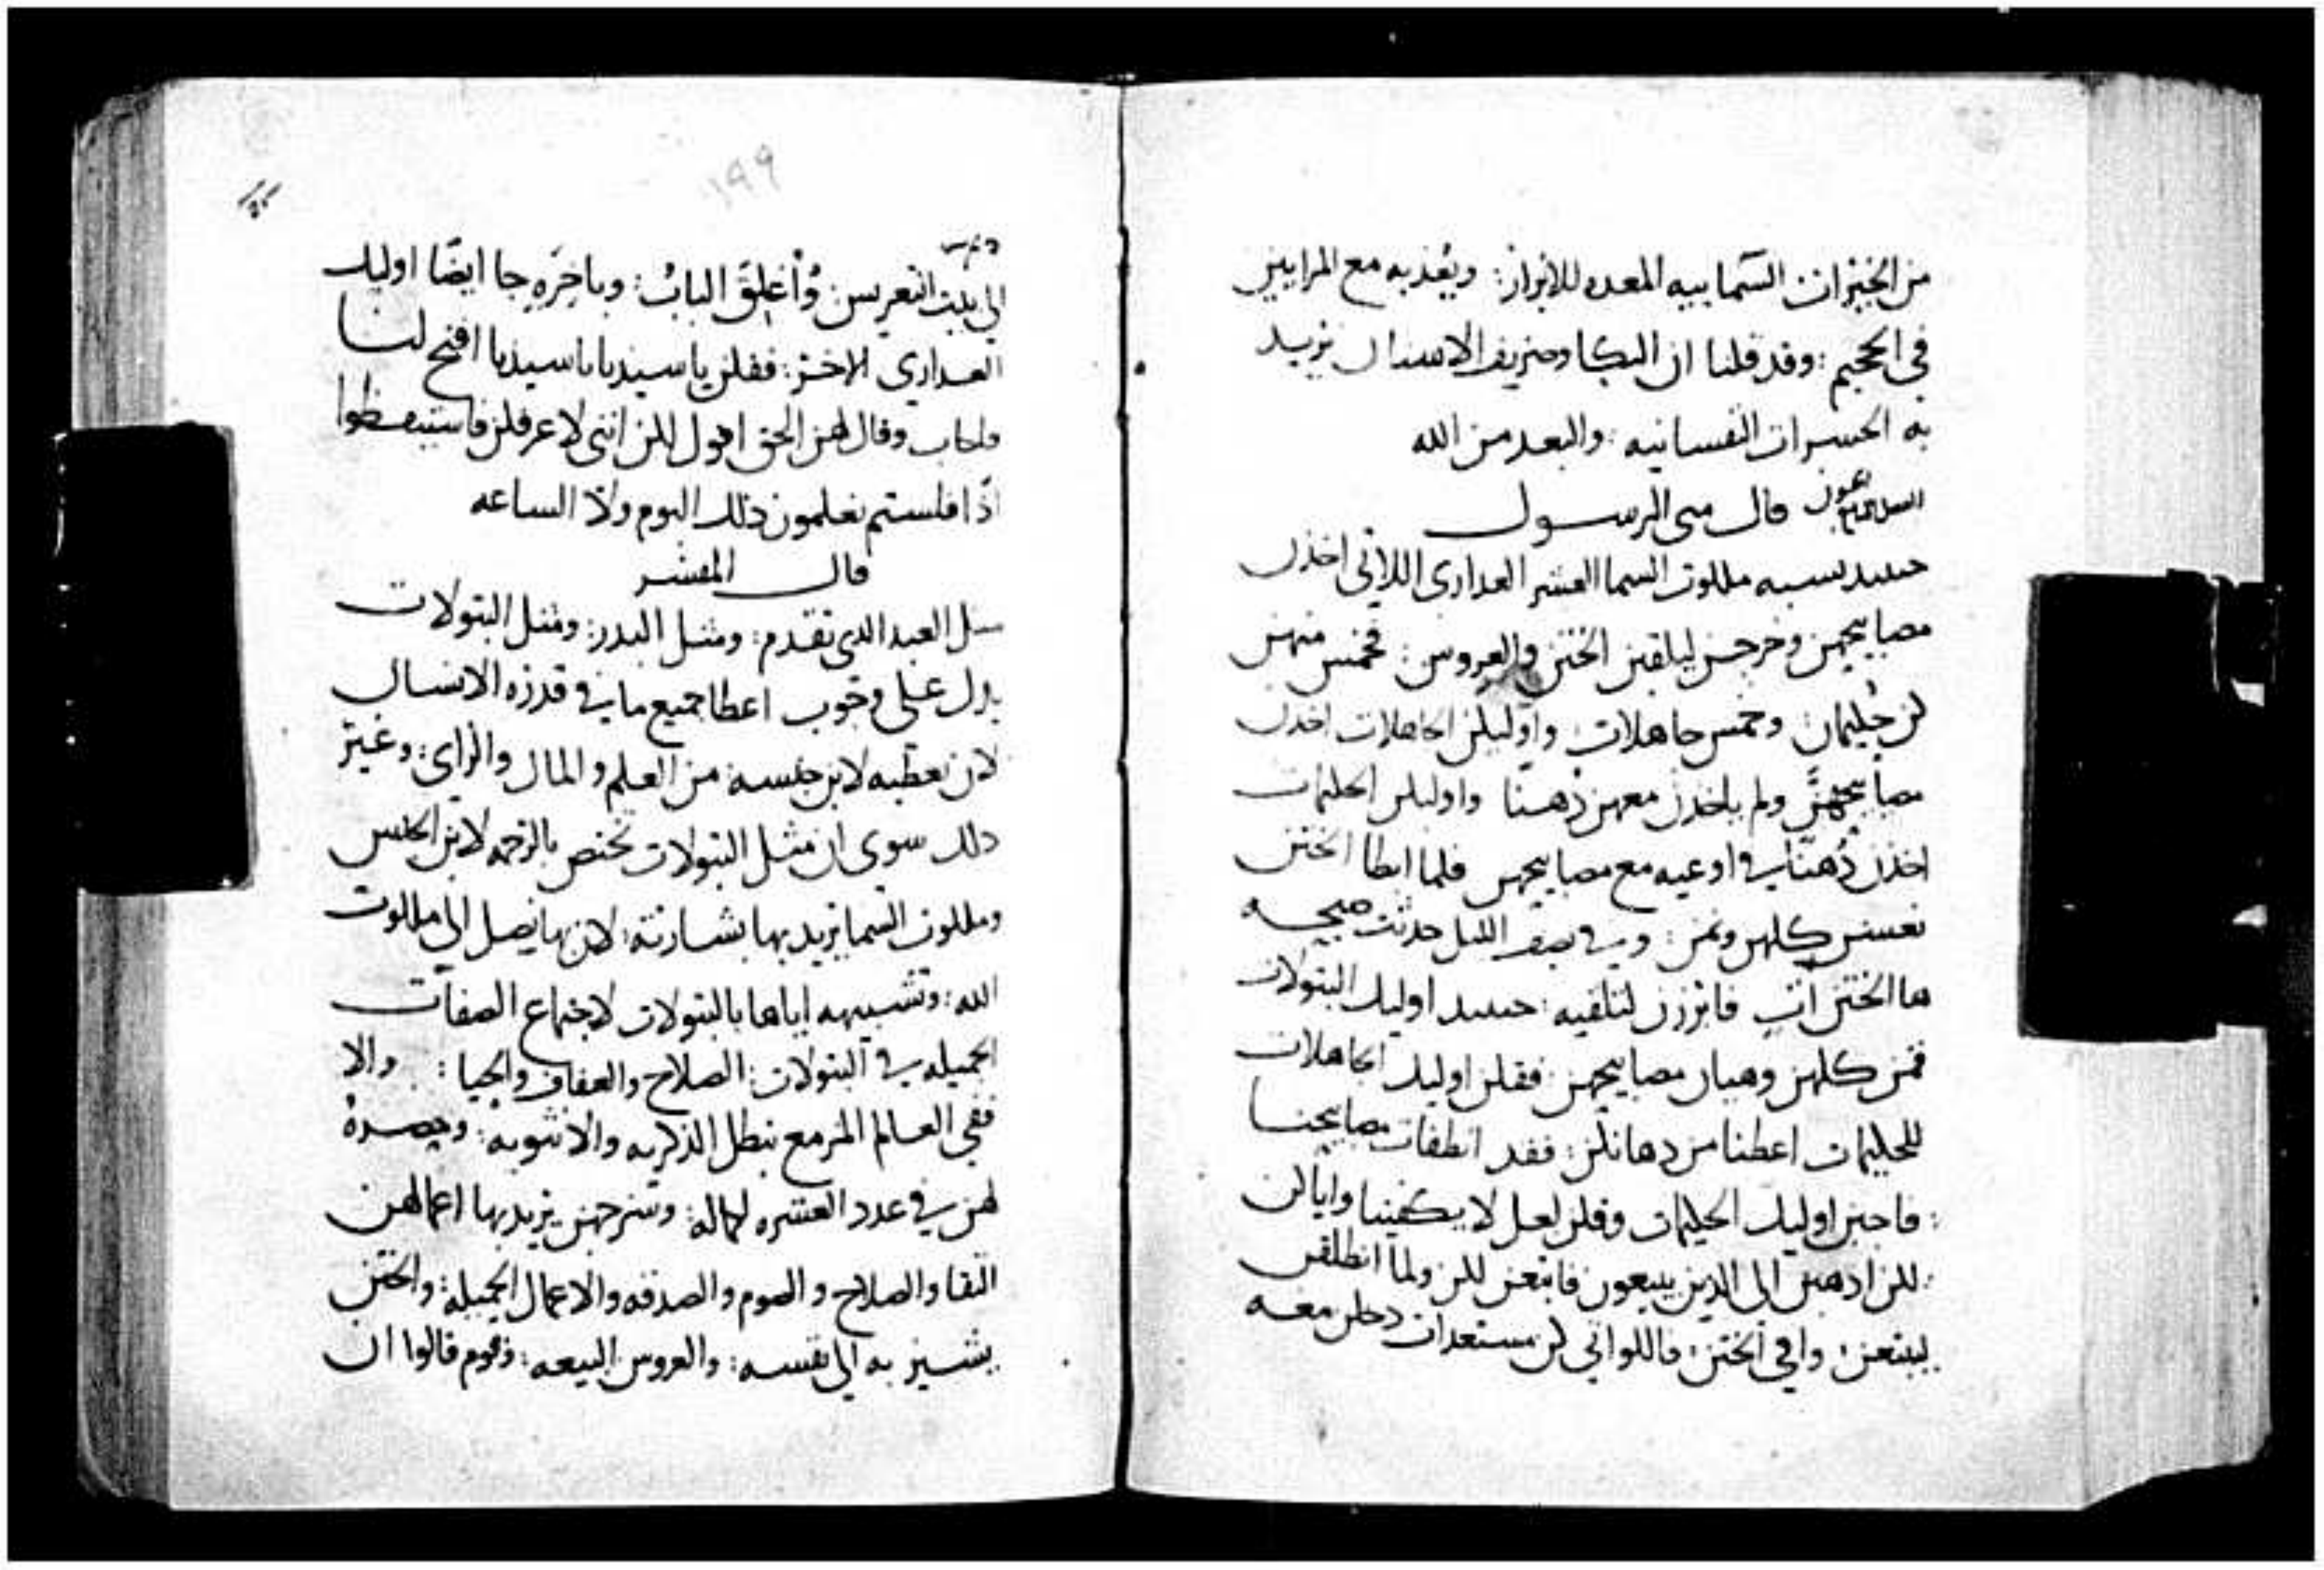 من الخيرات السماييه المعده للابرار: ويعذبه مع المرايين
في الجحيم: وقد قلنا ان البكا وصريف الاسنان يريد
به الحسرات النفسانيه: والبعد من الله
قال متى الرسول
حينيد تشبه ملكوت السما العشر العدارى اللاتي اخذن
مصابيحهن وخرجن ليلقين الختن والعروس: فخمس منهن
كن حليمات وخمس جاهلات: واوليك الجاهلات اخذن
مصابيحهن ولم ياخذن معهن دهنا واوليك الحليمات
اخذن دهنا في اوعيه مع مصابيحهن فلما ابطا الختن
نعسن كلهن ونمن: وفي نصف الليل حدثت صيحه
ها الختن ات فابرزن لتلقيه: حينيد اوليك البتولات
قمن كلهن وهيان مصابيحهن: فقلن اوليك الجاهلات
للحليمات اعطنا من دهانكن: فقد انطفات مصابيحنا
فاجبن اوليك الحليمات وقلن لعل لا يكفينا واياكن
لكن ادهبن الى الدين يبيعون فابتعن لكن ولما انطلقن
ليبتعن: وافى الختن: فاللواتي كن مستعدات دخلن معه
١٩٩
الى بيت التعريس: واغلق الباب: وباخره جا ايضا اوليك
العداري الاخر: فقلن يا سيدنا يا سيدنا افتح لنا
فاجاب وقال لهن الحق اقول لكن انني لا عرفكن فاستيقظوا
اذا فلستم تعلمون ذلك اليوم ولا الساعه
قال المفسر
مثل العبد الدي تقدم: ومثل البدر: ومثل البتولات
يدل على وجوب اعطا جميع ما في قدرة الانسان
لان يعطيه لابن جنسه: من العلم والمال والراي: وغير
دلك سوى ان مثل البتولات تختص بالرحمه لابن الجنس
وملكوت السما يريد بها بشارته: لان بها يصل الى ملكوت
الله: وتشبيهه اياها بالبتولات لاجتماع الصفات
الجميله في البتولات: الصلاح والعفاف والحيا: والا
ففي العالم المزمع تبطل الذكريه والانثويه: وحصره
لهن في عدد العشره لكماله: وسرجهن يريد بها اعمالهن
التقا والصلاح والصوم والصدقه والاعمال الجميله: والختن
يشير به الى نفسه: والعروس البيعه: وقوم قالوا ان